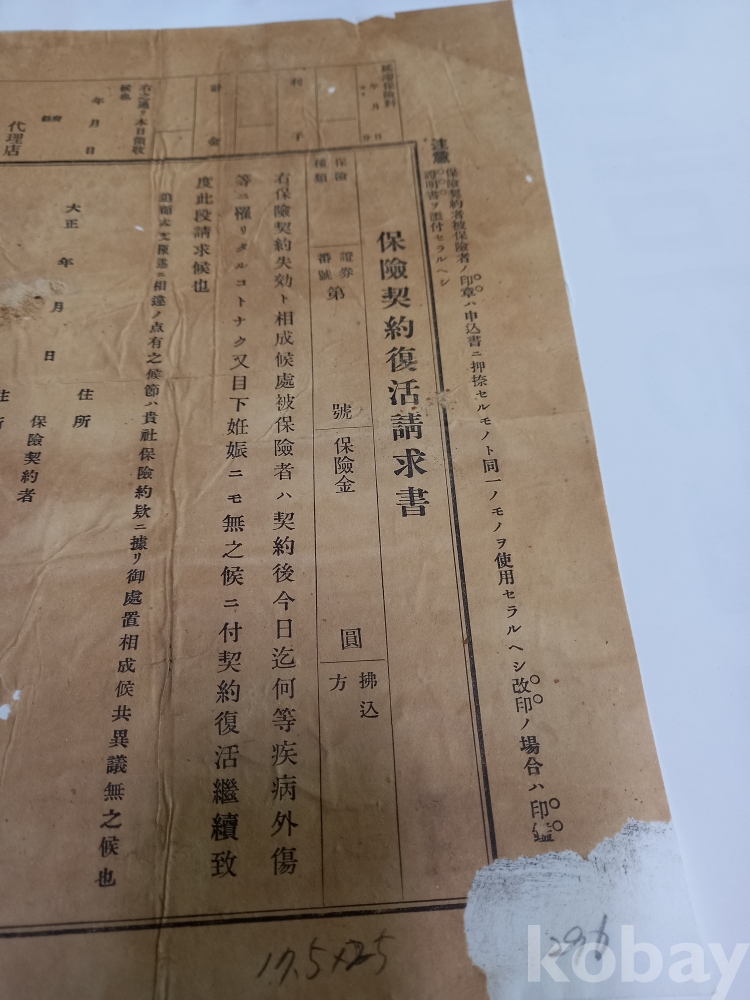 注意 保險契約者被保險者ノ印章ハ申込書ニ押捺セルモノト同一ノモノヲ使用セラルヘシ改印ノ場合ハ印鑑
證明書ヲ添付セラルヘシ
保險契約復活請求書
保險種類
證券番號 第 號
保險金 圓
拂込方
右保險契約失効ト相成候處被保險者ハ契約後今日迄何等疾病外傷
等ニ罹リタルコトナク又目下妊娠ニモ無之候ニ付契約復活繼續致
度此段請求候也
相違ノ点有之候節ハ貴社保險約款ニ據リ御處置相成候共異議無之候也
大正 年 月 日
住所
保險契約者
住所
保險料
年 月
日
利子
計金
右之通リ本日領收候也
年 月 日
代理店
17.5×25
kobay